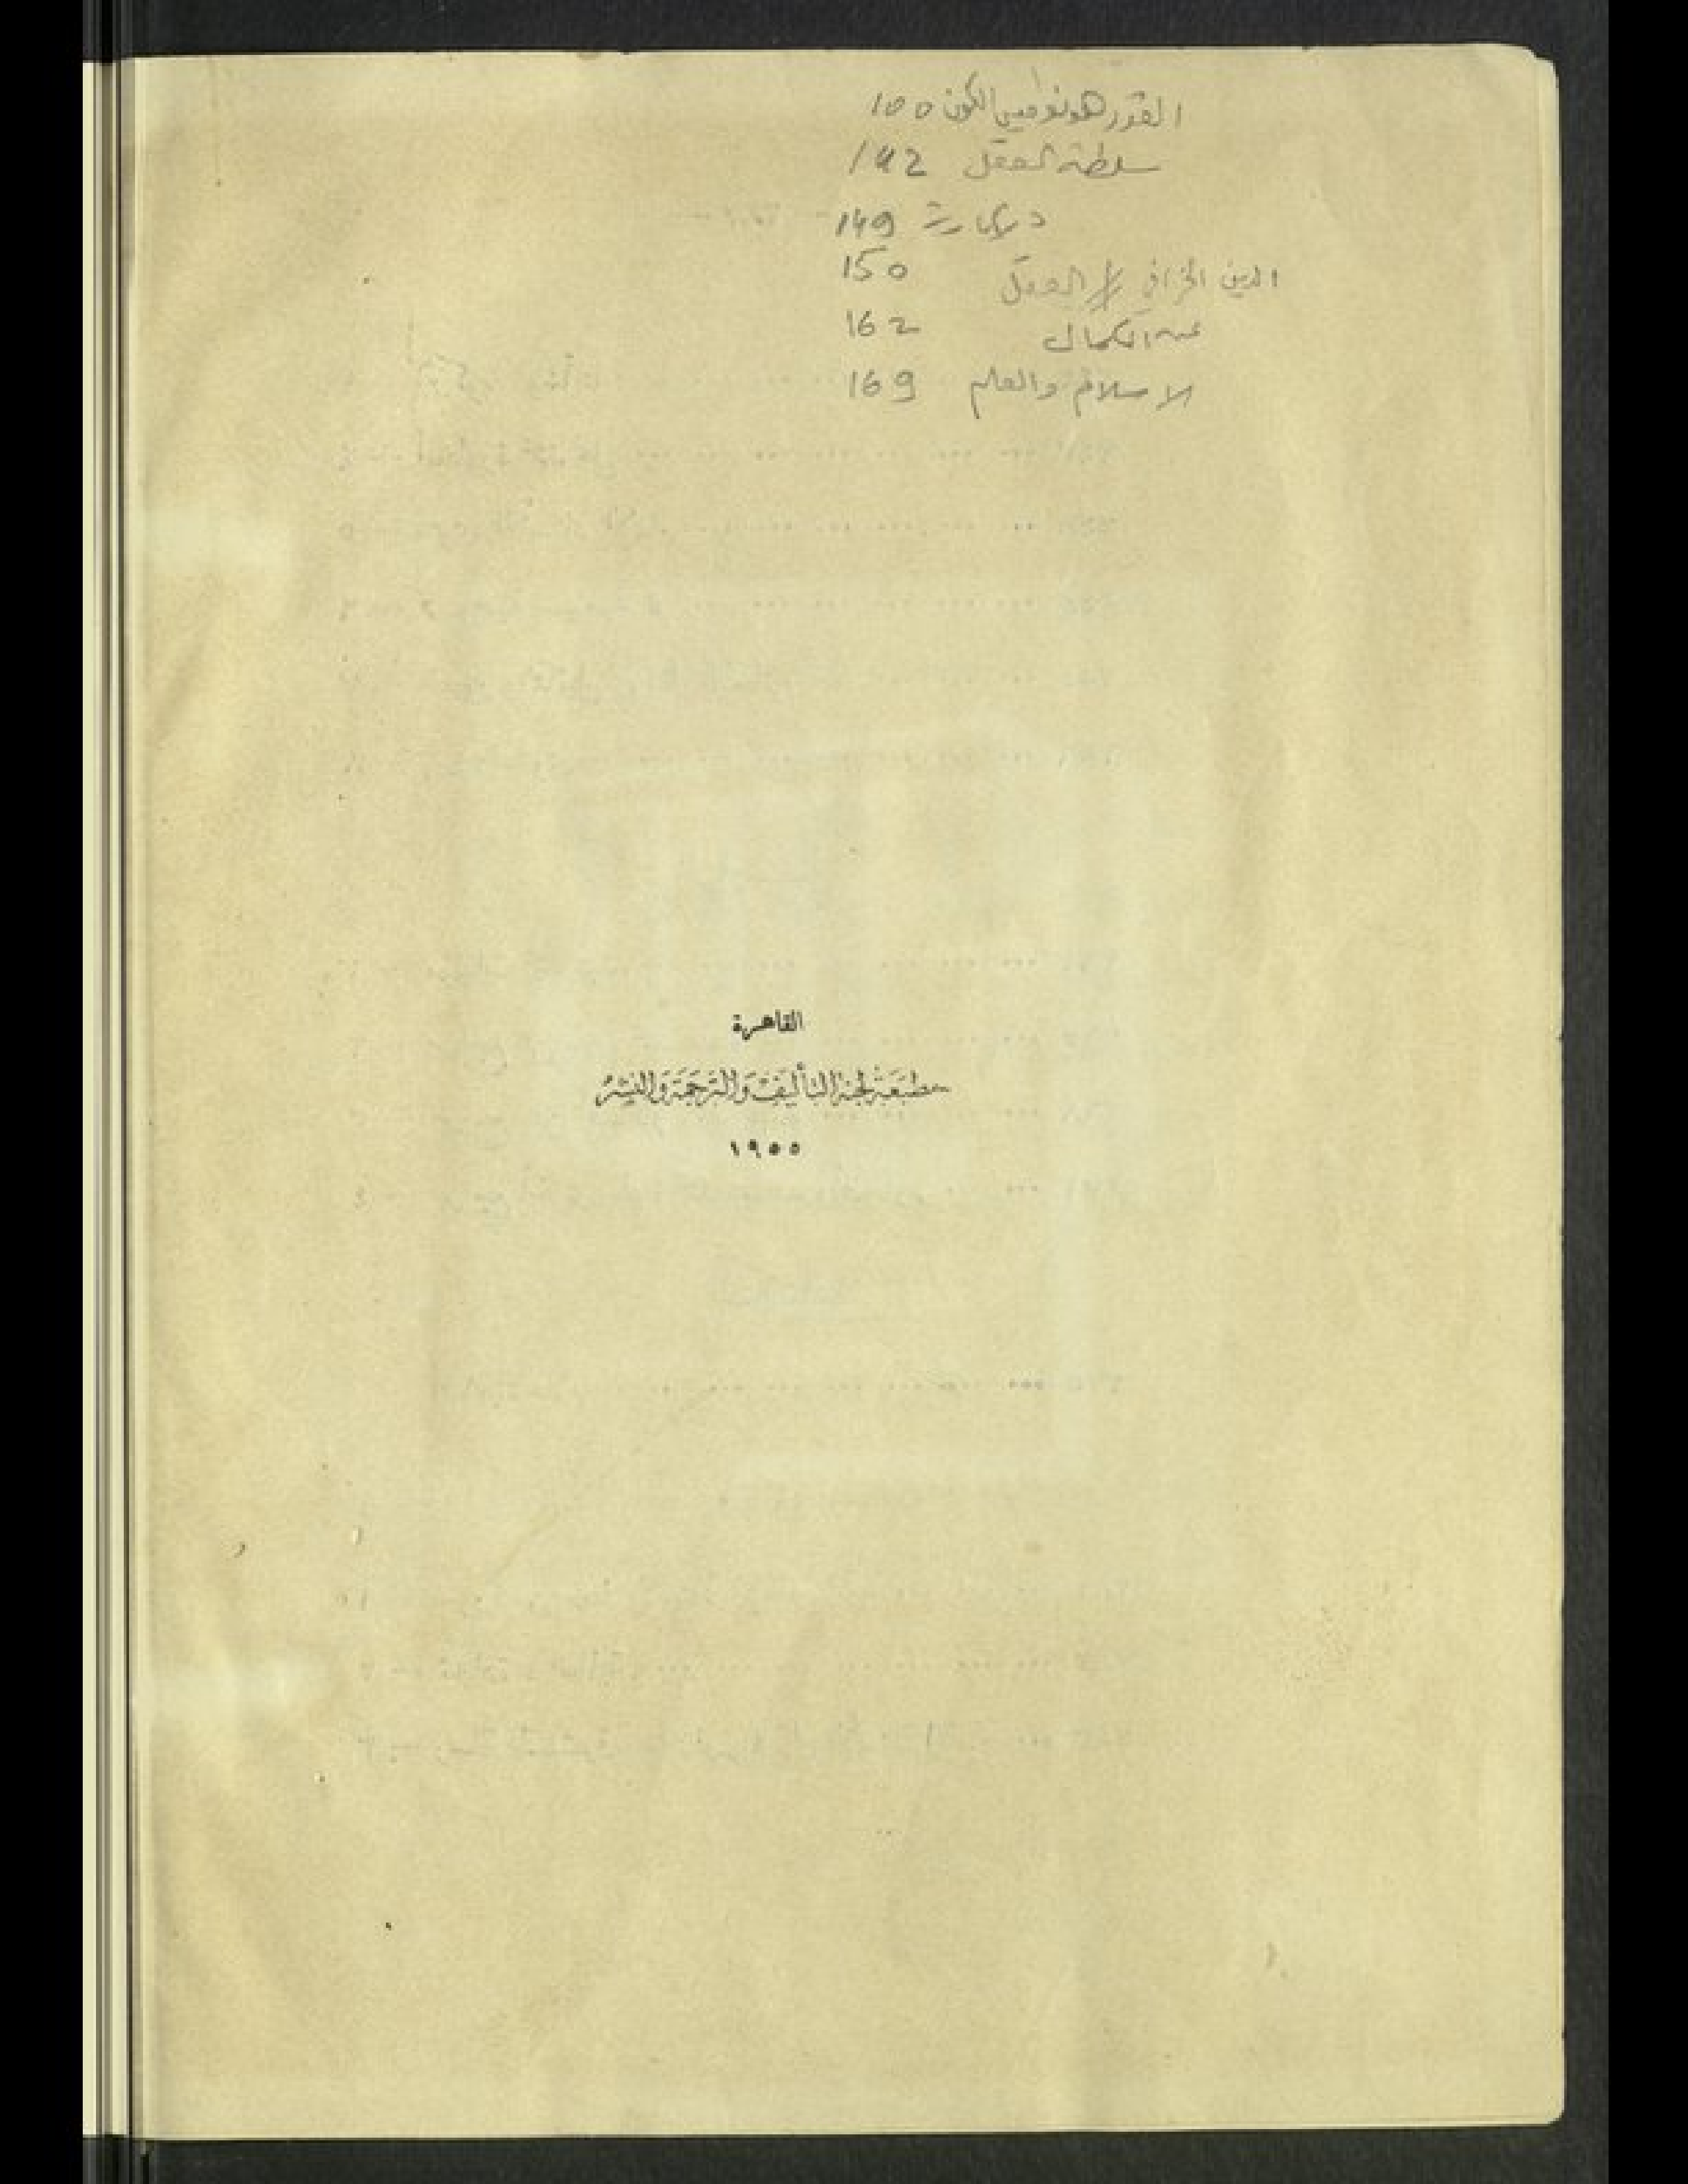 القدر هو نواميس الكون 100
سلطة العقل 142
ديكارت 149
الدين الخرافي # العقل 150
عن الكمال 162
الاسلام والعلم 169
القاهرة
مطبَعَة لجنة التأليف وَالترجَمَة وَالنشر
١٩٥٥